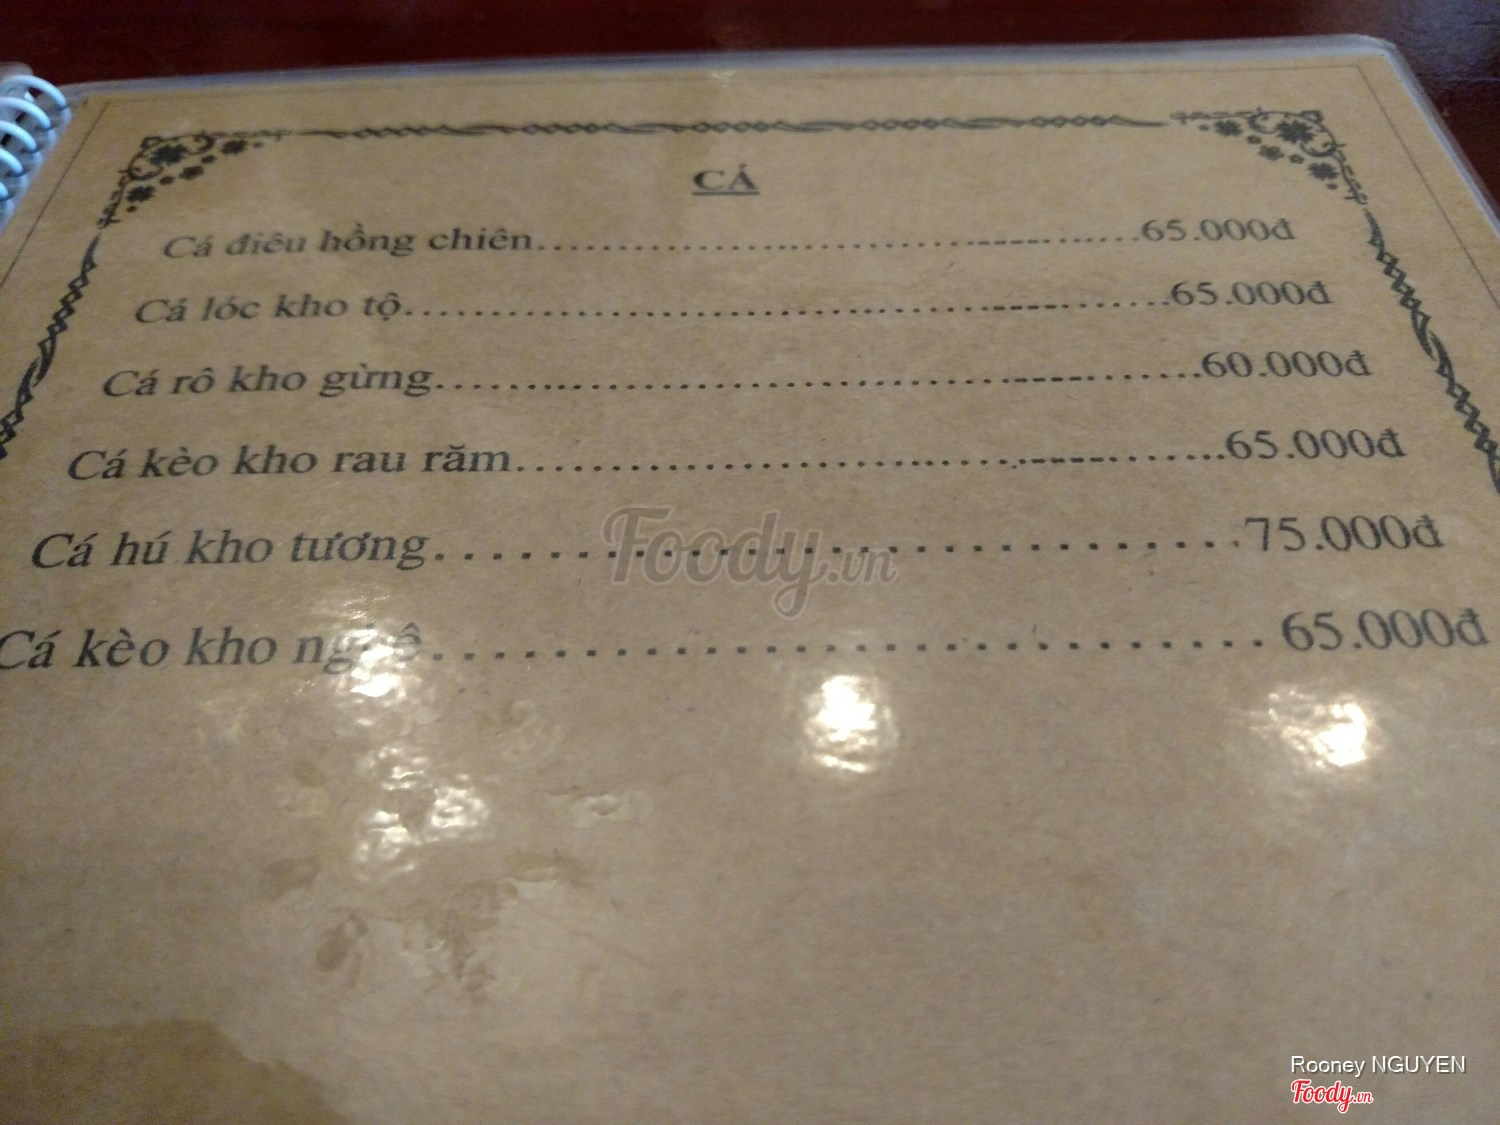 CÁ
Cá điêu hồng chiên........................................65.000đ
Cá lóc kho tộ........................................65.000đ
Cá rô kho gừng........................................60.000đ
Cá kèo kho rau răm........................................65.000đ
Cá hú kho tương........................................75.000đ
Cá kèo kho nghệ........................................65.000đ
Foody.vn
Rooney NGUYEN
Foody.vn